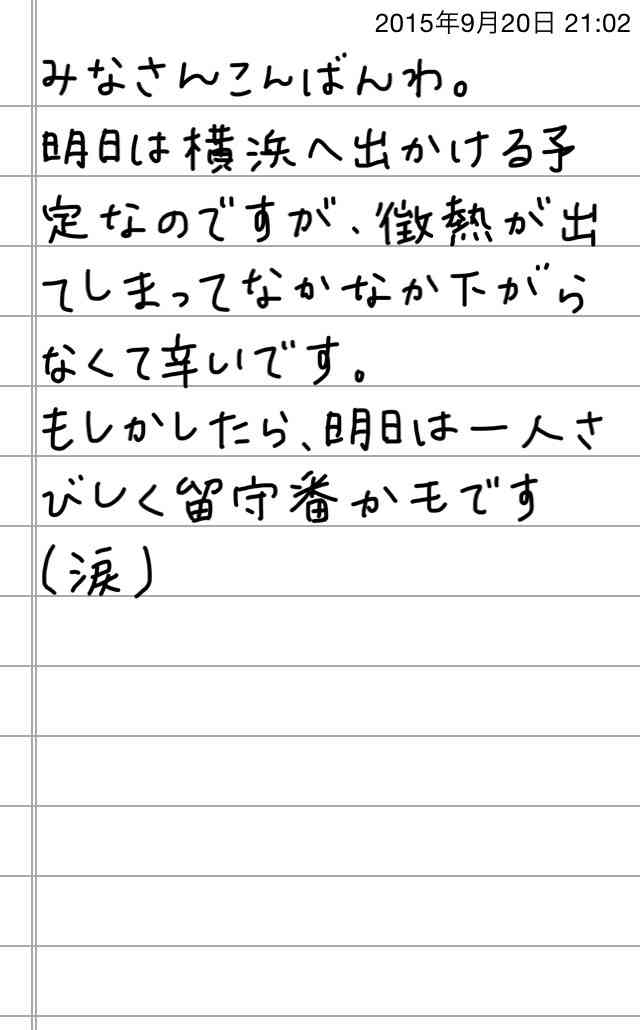 2015年9月20日 21:02
みなさんこんばんわ。
明日は横浜へ出かける予
定なのですが、微熱が出
てしまってなかなか下がら
なくて辛いです。
もしかしたら、明日は一人さ
びしく留守番かモです
(涙)